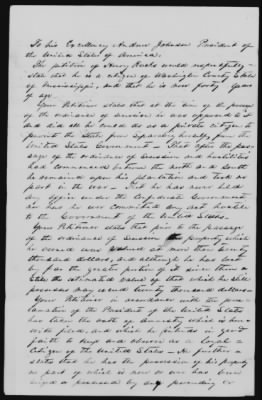 To his Excellency Andrew Johnson President of
the United States of America.
The petition of Henry would respectfully
state that he is a citizen of Washington County State
of Mississippi, and that he is now forty years
of age.
Your Petitioner states that at the time of the passage
of the ordinance of secession he was opposed to it
and did all he could do as a private citizen to
prevent the State from separating herself from the
United States Government — That after the pas-
sage of the ordinance of secession and hostilities
had commenced between the north and south
he remained upon his plantation and took no
part in the war — That he has never held
any office under the Confederate Government
nor has he ever committed any act hostile
to the Government of the United States.
Your Petitioner states that prior to the passage
of the ordinance of Secession the property which
he owned was valued at more than twenty
thousand dollars, and although he has lost
by far the greater portion of it since then
the estimated value of that which he still
possesses may exceed twenty thousand dollars
Your Petitioner in accordance with the proc-
lamation of the President of the United States
has taken the oath of Amnesty which is here-
with filed, and which he intends in good
faith to keep and observe as a loyal
Citizen of the United States — He further
states that he has the possession of his property
no part of which is now or ever has been
seized or possessed by any proceeding or